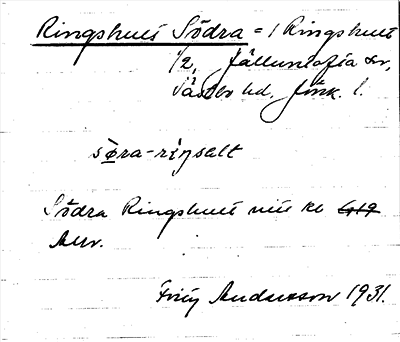 Ringshult Södra = / Ringshult
1/2, Fällentofta sn,
Västbo hd, Jönk. l.
søra-riŋsalt
Södra Ringshult
Auv.
Fritz Andersson 1931.